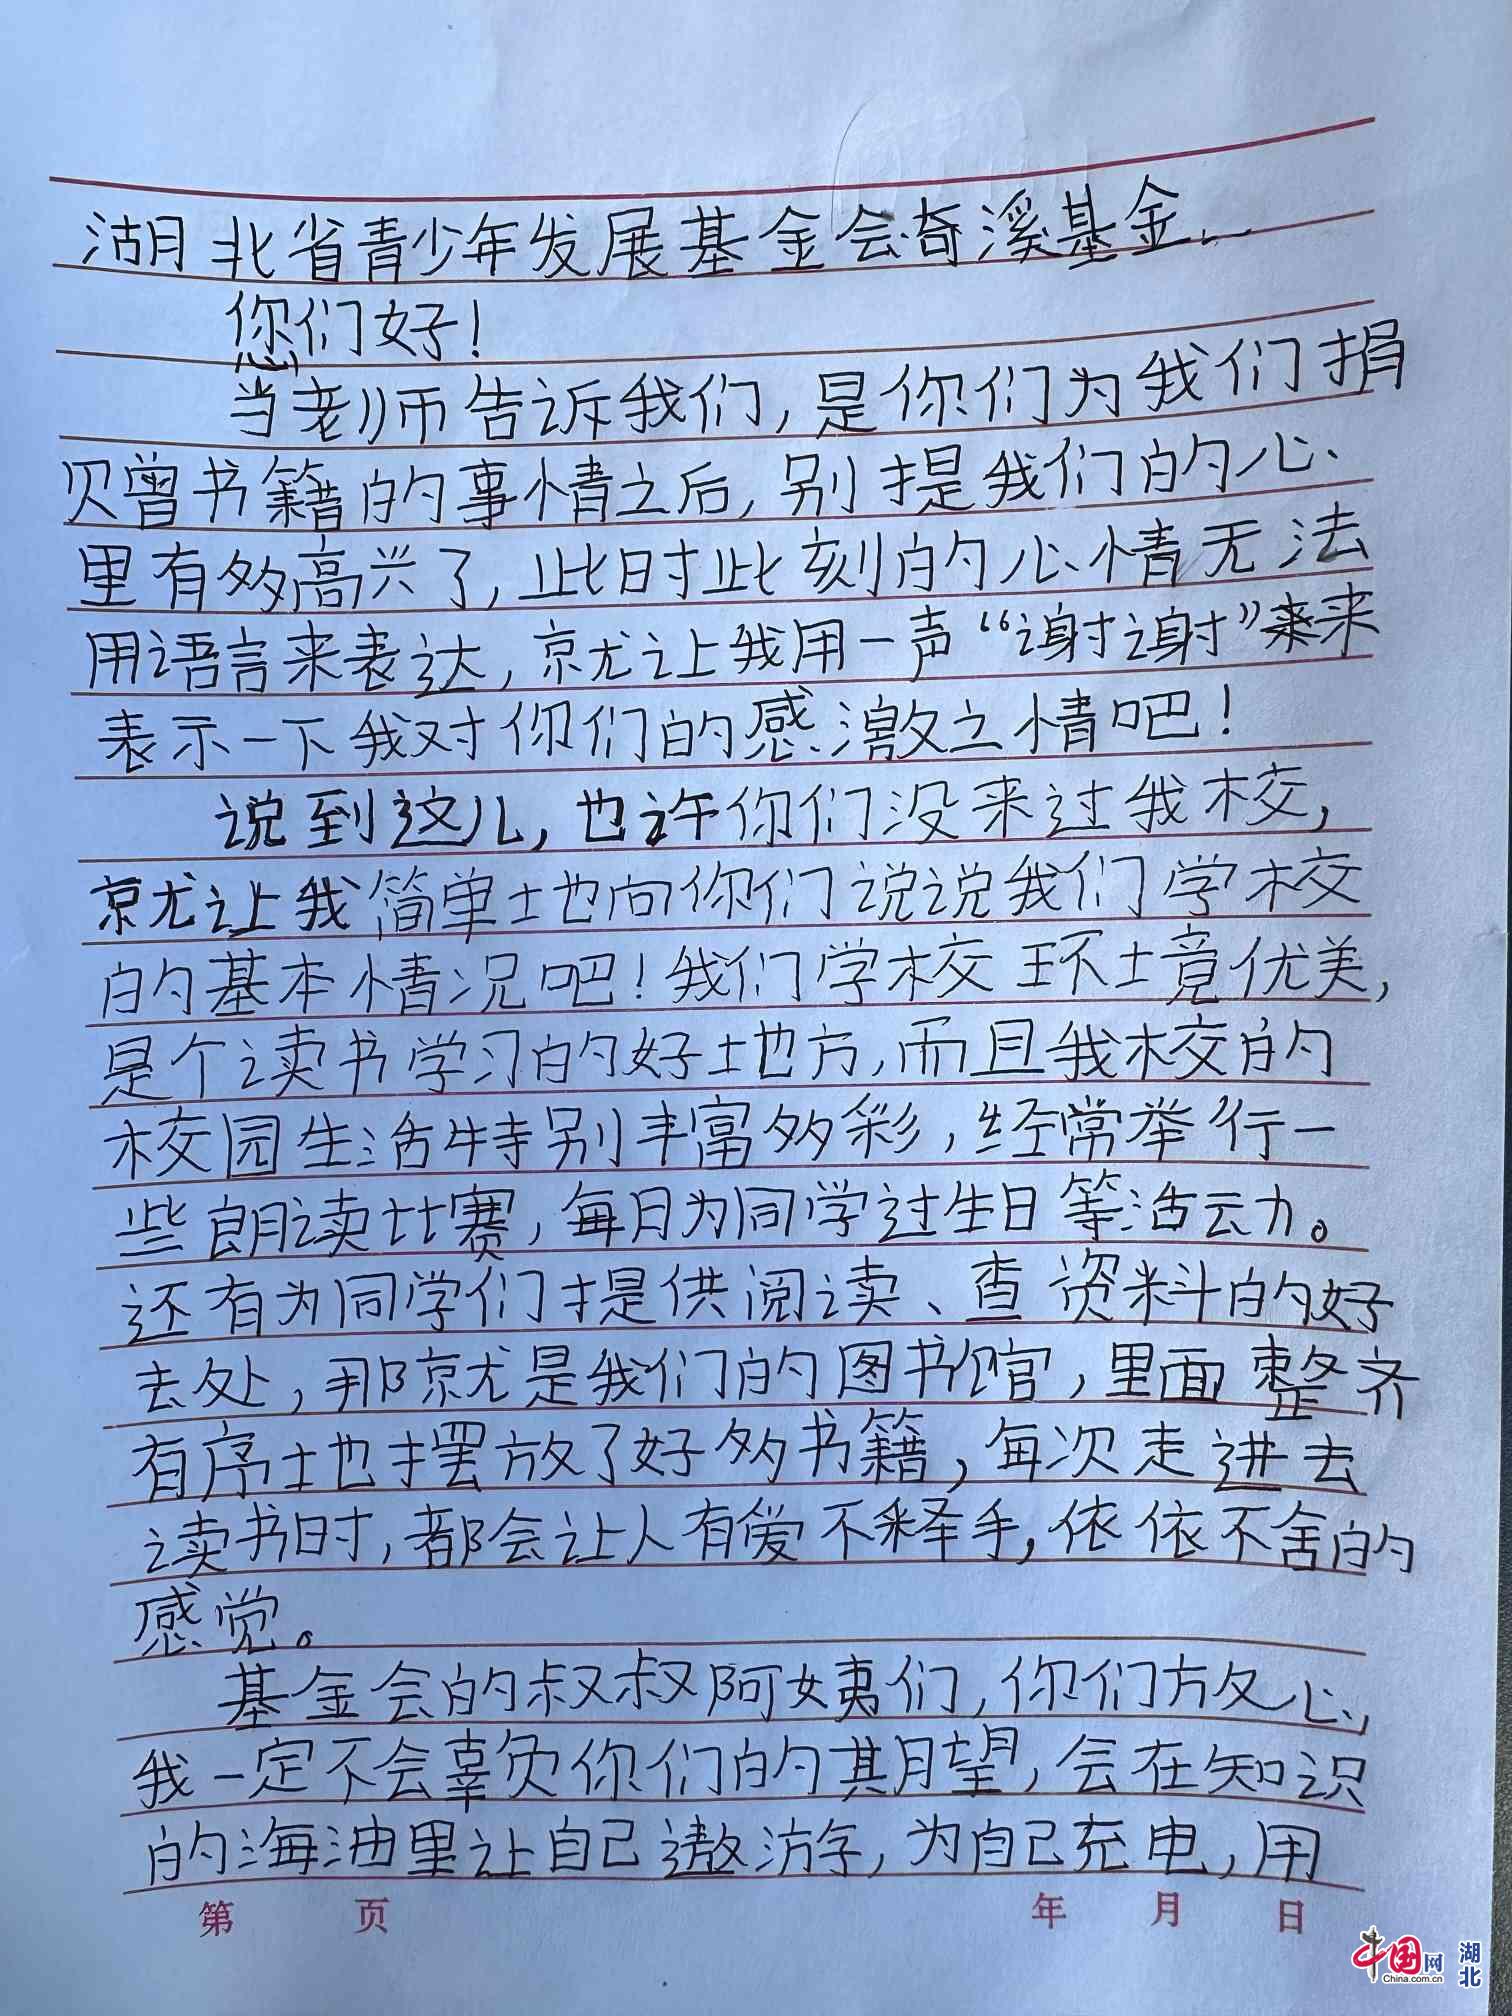 湖北省青少年发展基金会奇溪基金:
您们好!
当老师告诉我们,是你们为我们捐
赠书籍的事情之后,别提我们的心
里有多高兴了,此时此刻的心情无法
用语言来表达,就让我用一声“谢谢”来
表示一下我对你们的感激之情吧!
说到这儿,也许你们没来过我校,
就让我简单地向你们说说我们学校
的基本情况吧!我们学校环境优美,
是个读书学习的好地方,而且我校的
校园生活特别丰富多彩,经常举行一
些朗读比赛,每月为同学过生日等活动。
还有为同学们提供阅读、查资料的好
去处,那就是我们的图书馆,里面整齐
有序地摆放了好多书籍,每次走进去
读书时,都会让人有爱不释手,依依不舍的
感觉。
基金会的叔叔阿姨们,你们放心,
我一定不会辜负你们的期望,会在知识
的海油里让自己遨游,为自己充电,用
第 页 年 月 日
中国网 湖北
China.com.cn